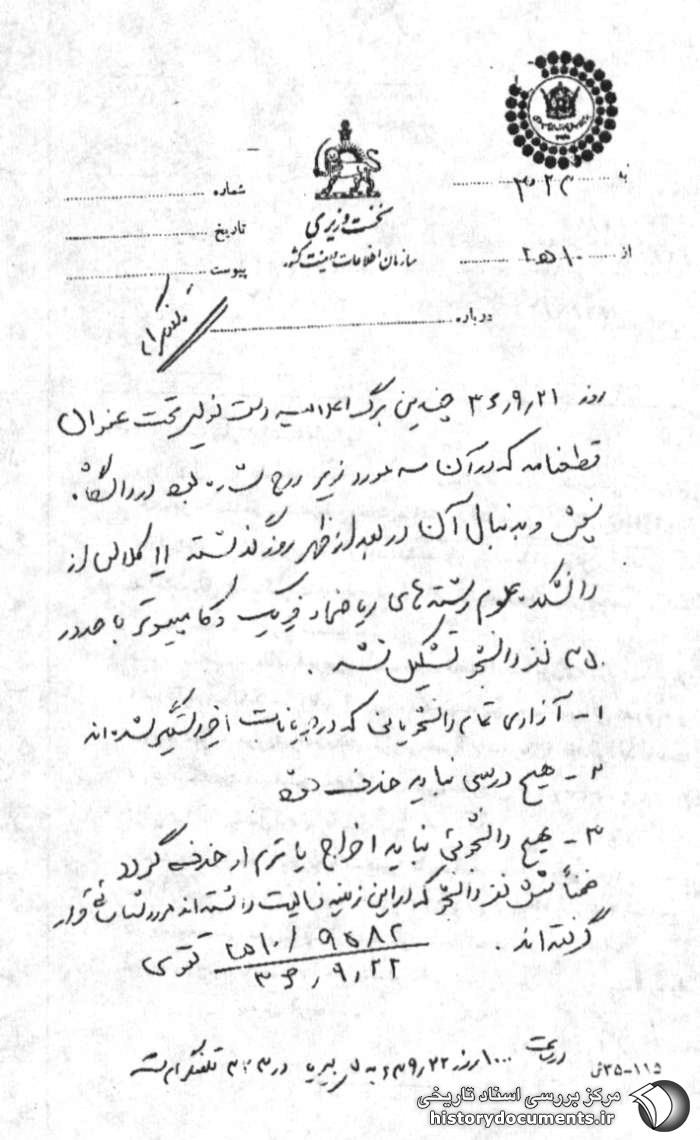 به ۳۲۳
شماره
تاریخ
پیوست
نخست وزیری
سازمان اطلاعات و امنیت کشور
از ۱۰ﻫ۲
درباره
تلفنگرام
روز ۳۶٫۹٫۲۱ چندین برگ اعلامیه دست نویس تحت عنوان
قطعنامه که در آن سه مورد زیر درج شده بود در دانشگاه
پخش و به دنبال آن در بعد از ظهر روز گذشته ۱۱ کلاس از
دانشکده علوم رشته‌های ریاضی و فیزیک و کامپیوتر با حدود
نفر دانشجو تشکیل نشد.
۱- آزادی تمام دانشجویانی که در جریانات اخیر دستگیر شده‌اند
۲- هیچ درسی نباید حذف شود
۳- هیچ دانشجوئی نباید اخراج یا ترم او حذف گردد
ضمناً شش نفر دانشجو که در این زمینه فعالیت داشته‌اند مورد شناسائی قرار
گرفته‌اند.
۱۰ﻫ۲ / ۹۵۸۲
۳۶٫۹٫۲۲
تقوی
ساعت ۱۰۰۰ روز ۳۶٫۹٫۲۲ به در ۳۲۳ تلفنگرام شد
۱۱۵-۳۵ش
مرکز بررسی اسناد تاریخی
historydocuments.ir